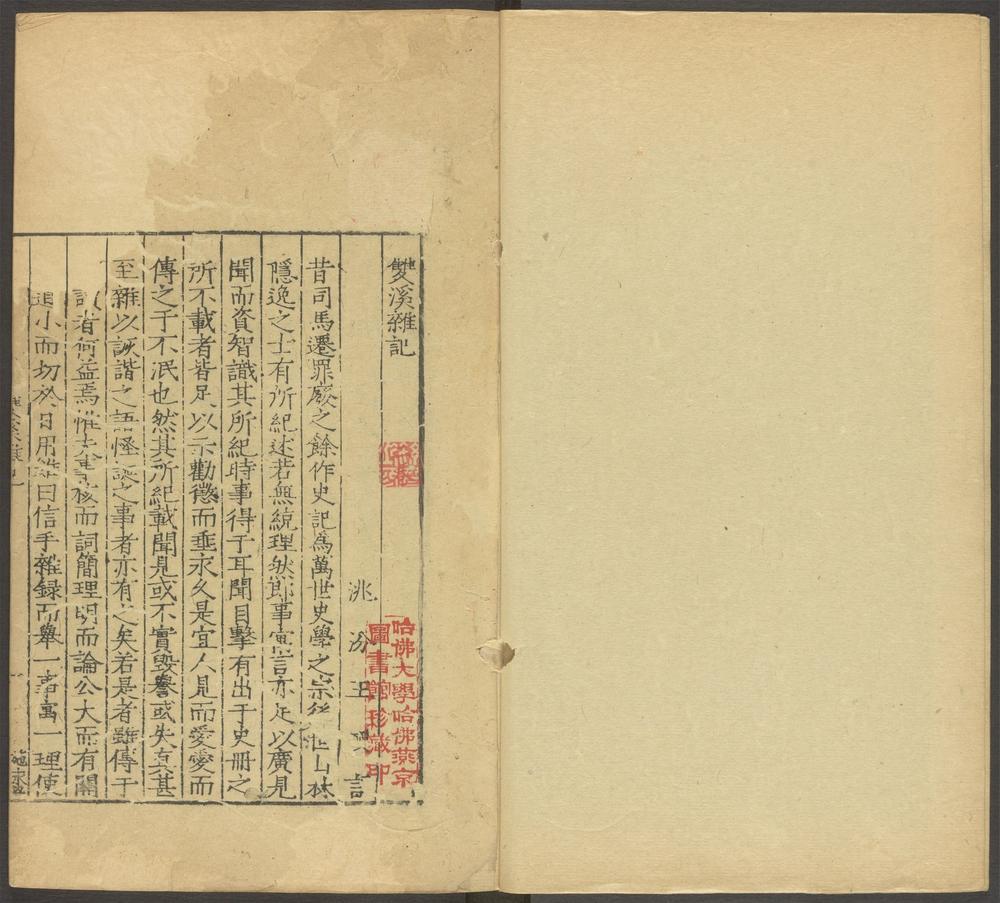 雙溪雜記
洮汾王 言
昔司馬遷罪廢之餘作史記為萬世史學之宗 山林
隱逸之士有所紀述若無統理然郎事 言亦足以廣見
聞而資智識其所紀時事得于耳聞目擊有出于史冊之
所不載者皆足以示勸懲而垂永久是宜人見而愛愛而
傳之于不泯也然其所紀載聞見或不實毀譽或失真甚
至雜以詼諧之語怪 之事者亦有之矣若是者雖傳于
者何益焉惟 核而詞簡理明而論公大而有關
小而切於日用 曰信手雜錄而舉一事寓一理使
哈佛大學哈佛燕京
圖書館珍藏印